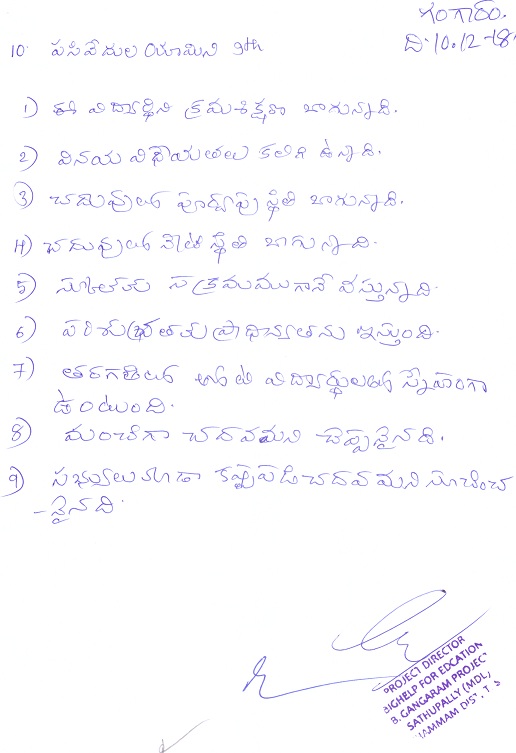 గంగారం.
ది. 10.12-18
10. పసివేదుల యామిని 9th
1) ఈ విద్యార్థిని క్రమశిక్షణ బాగున్నది.
2) వినయ విధేయతలు కలిగి ఉన్నది.
3) చదువులో పూర్వపు స్థితి బాగున్నది.
4) చదువులో నేటి స్థితి బాగున్నది.
5) స్కూలుకు సక్రమముగానే వస్తున్నది.
6) పరిశుభ్రతకు ప్రాధాన్యతను ఇస్తుంది.
7) తరగతిలో తోటి విద్యార్థులతో స్నేహంగా
ఉంటుంది.
8) మంచిగా చదవమని చెప్పనైనది.
9) సభ్యులు కూడా కష్టపడి చదవమని సూచించ
-నైనది.
PROJECT DIRECTOR
BIGHELP FOR EDCATION
B. GANGARAM PROJECT
SATHUPALLY (MDL)
KHAMMAM DIST. T S